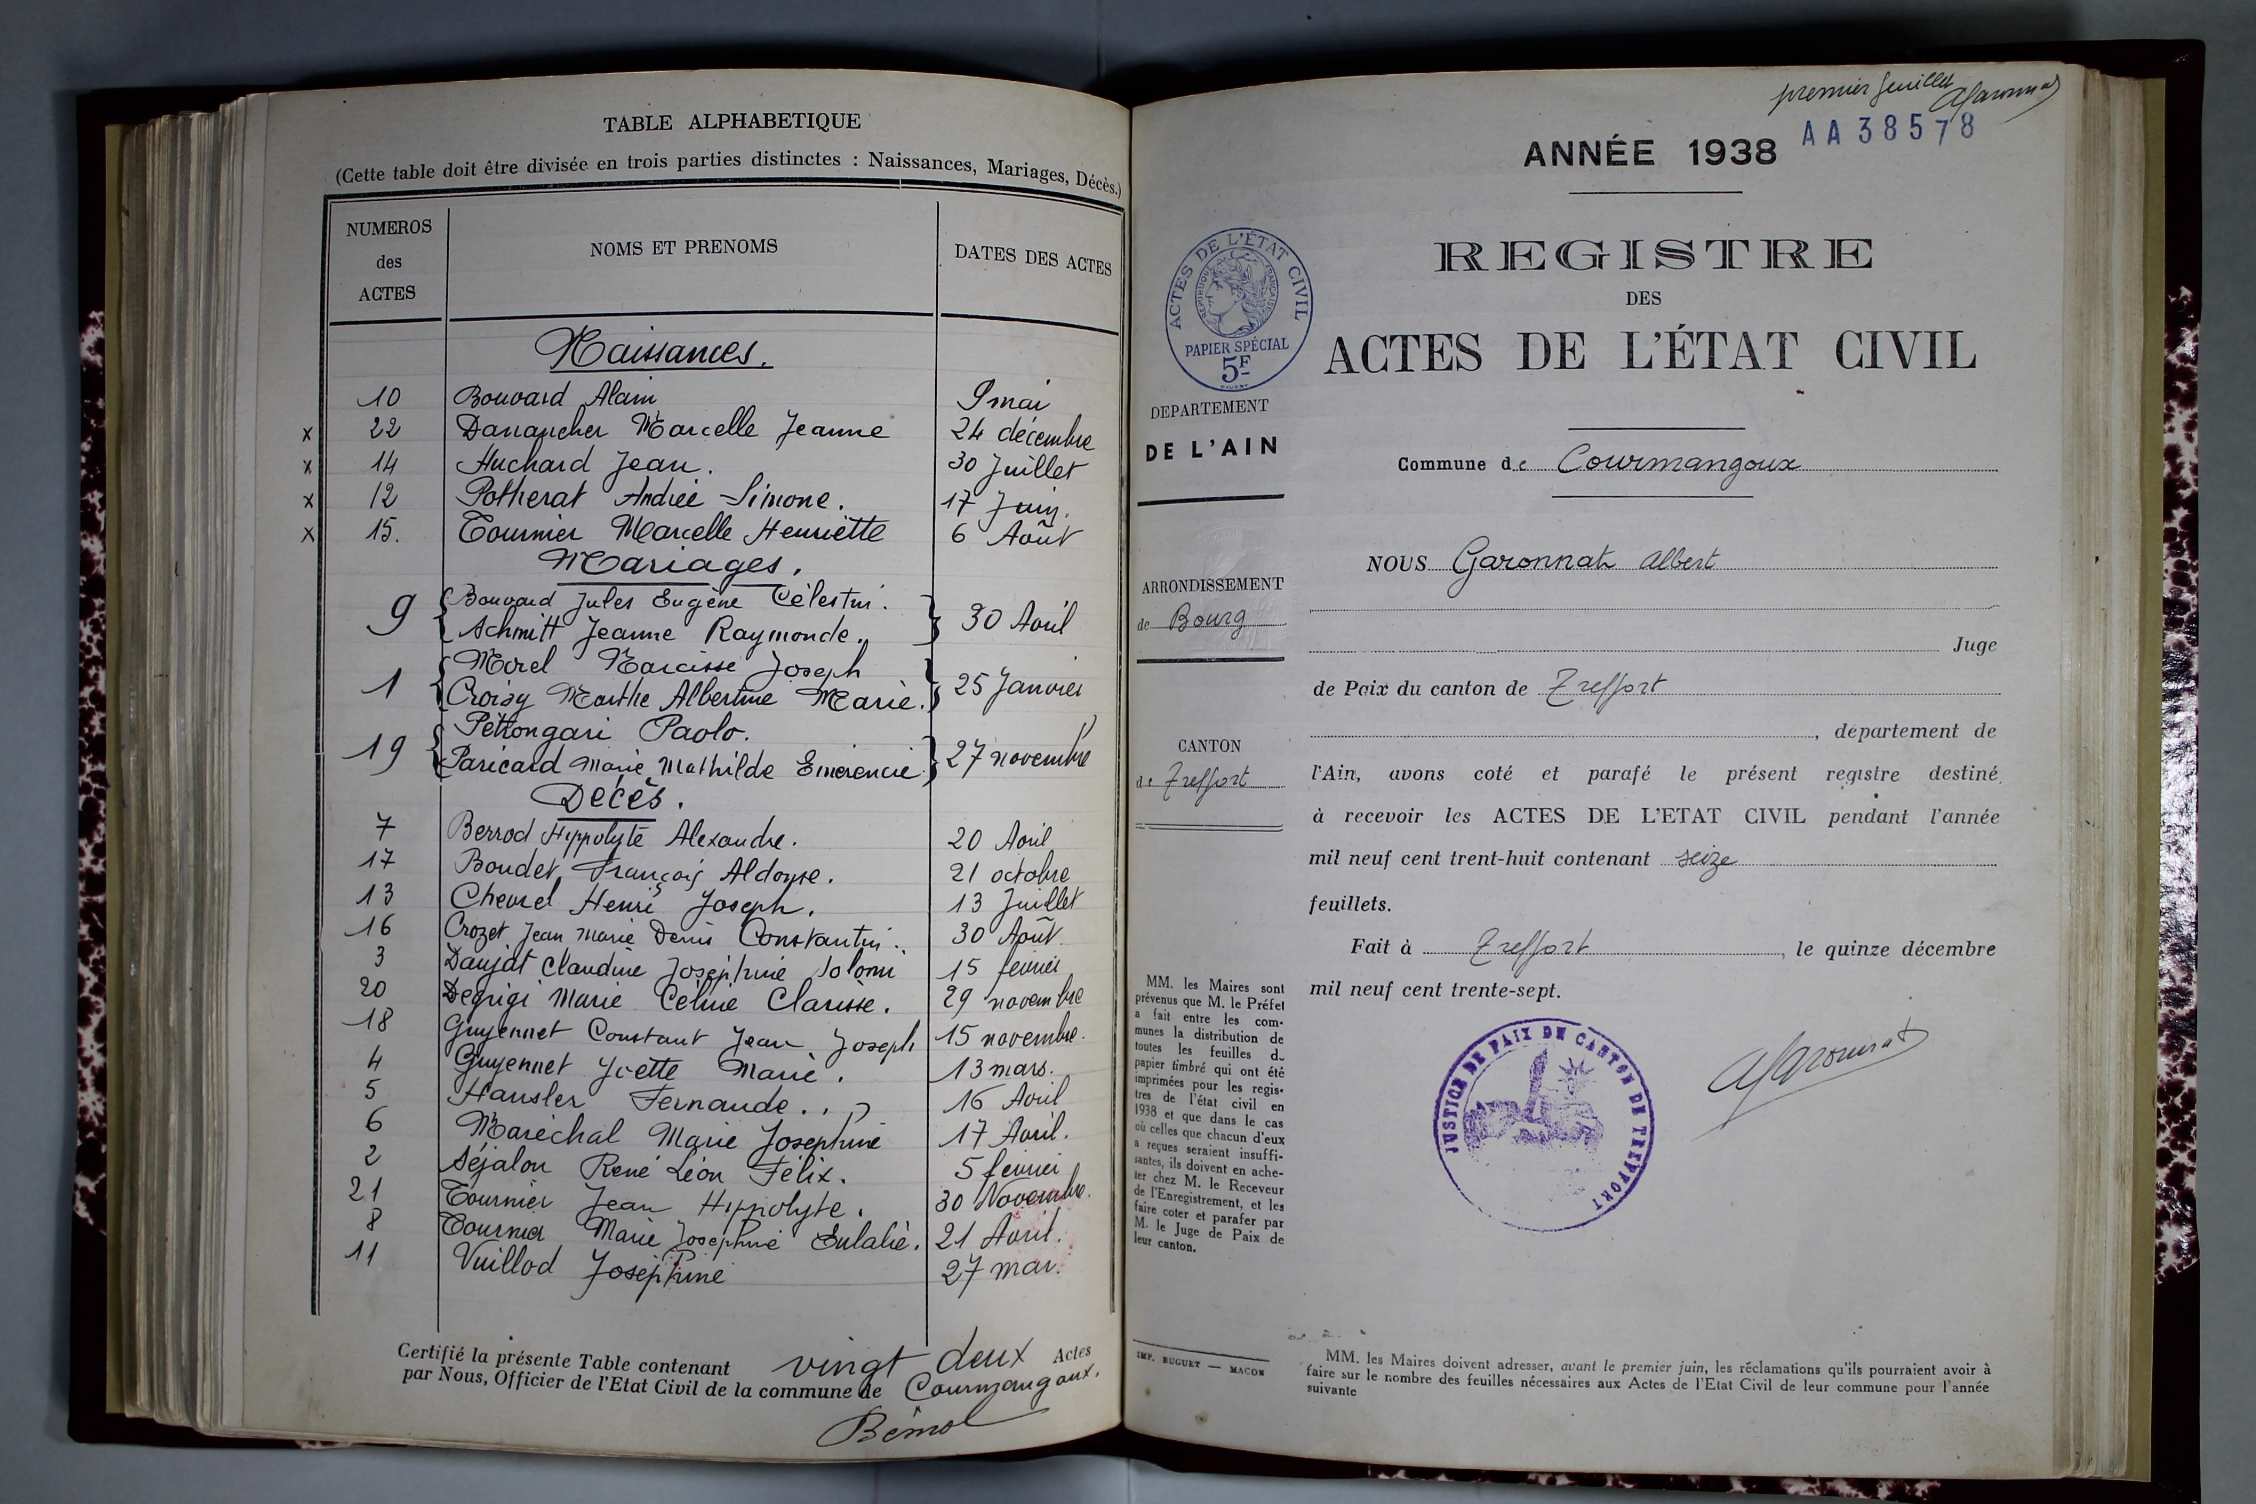 TABLE ALPHABETIQUE
(Cette table doit être divisée en trois parties distinctes : Naissances, Mariages, Décès.)
NUMEROS des ACTES NOMS ET PRENOMS DATES DES ACTES
Naissances.
10 Bouvard Alain 9 mai
x 22 Danancher Marcelle Jeanne 24 décembre
x 14 Huchard Jean. 30 Juillet
x 12 Potherat Andrée Simone. 17 Juin.
x 15. Tournier Marcelle Henriette 6 Août
Mariages.
9 { Bouvard Jules Eugène Célestin.
Schmitt Jeanne Raymonde. } 30 Avril
1 { Morel Narcisse Joseph
Croisy Marthe Albertine Marie. } 25 Janvier
19 { Petrongari Paolo.
Paricard Marie Mathilde Emerencie } 27 novembre
Décès.
7 Berrod Hippolyte Alexandre. 20 Avril
17 Boudet François Aldonse. 21 octobre
13 Chevrel Henri Joseph. 13 Juillet
16 Crozet Jean Marie Denis Constantin. 30 Août
3 Daujat Claudine Joséphine 15 février
20 Degrigi Marie Céline Clarisse. 29 novembre
18 Guyennet Constant Jean Joseph 15 novembre.
4 Guyennet Yvette Marie. 13 mars.
5 Hansler Fernande. 16 Avril
6 Maréchal Marie Joséphine 17 Avril.
2 Séjalon René Léon Félix. 5 février
21 Tournier Jean Hippolyte. 30 Novembre.
8 Tournier Marie Josephine Eulalie. 21 Avril.
11 Vuillod Joséphine 27 mai.
Certifié la présente Table contenant vingt deux Actes
par Nous, Officier de l'Etat Civil de la commune de Courmangoux.
premier feuillet
AGaronnat
AA38578
ANNÉE 1938
REGISTRE
DES
ACTES DE L'ÉTAT CIVIL
Commune de Courmangoux
NOUS Garonnat Albert
Juge
de Paix du canton de Treffort
, département de
l'Ain, avons coté et parafé le présent registre destiné
à recevoir les ACTES DE L'ETAT CIVIL pendant l'année
mil neuf cent trent-huit contenant seize
feuillets.
Fait à Treffort, le quinze décembre
mil neuf cent trente-sept.
JUSTICE DE PAIX DU CANTON DE TREFFORT
AGaronnat
MM. les Maires doivent adresser, avant le premier juin, les réclamations qu'ils pourraient avoir à
faire sur le nombre des feuilles nécessaires aux Actes de l'Etat Civil de leur commune pour l'année
suivante
ACTES DE L'ÉTAT CIVIL
REPUBLIQUE FRANÇAISE
PAPIER SPÉCIAL
5F
DEPARTEMENT
DE L'AIN
ARRONDISSEMENT
de Bourg
CANTON
de Treffort
MM. les Maires sont
prévenus que M. le Préfet
a fait entre les com-
munes la distribution de
toutes les feuilles d
papier timbré qui ont été
imprimées pour les regis-
tres de l'état civil en
1938 et que dans le cas
où celles que chacun d'eux
a reçues seraient insuffi-
santes, ils doivent en ache-
ter chez M. le Receveur
de l'Enregistrement, et les
faire coter et parafer par
M. le Juge de Paix de
leur canton.
IMP. BUGUET — MACON